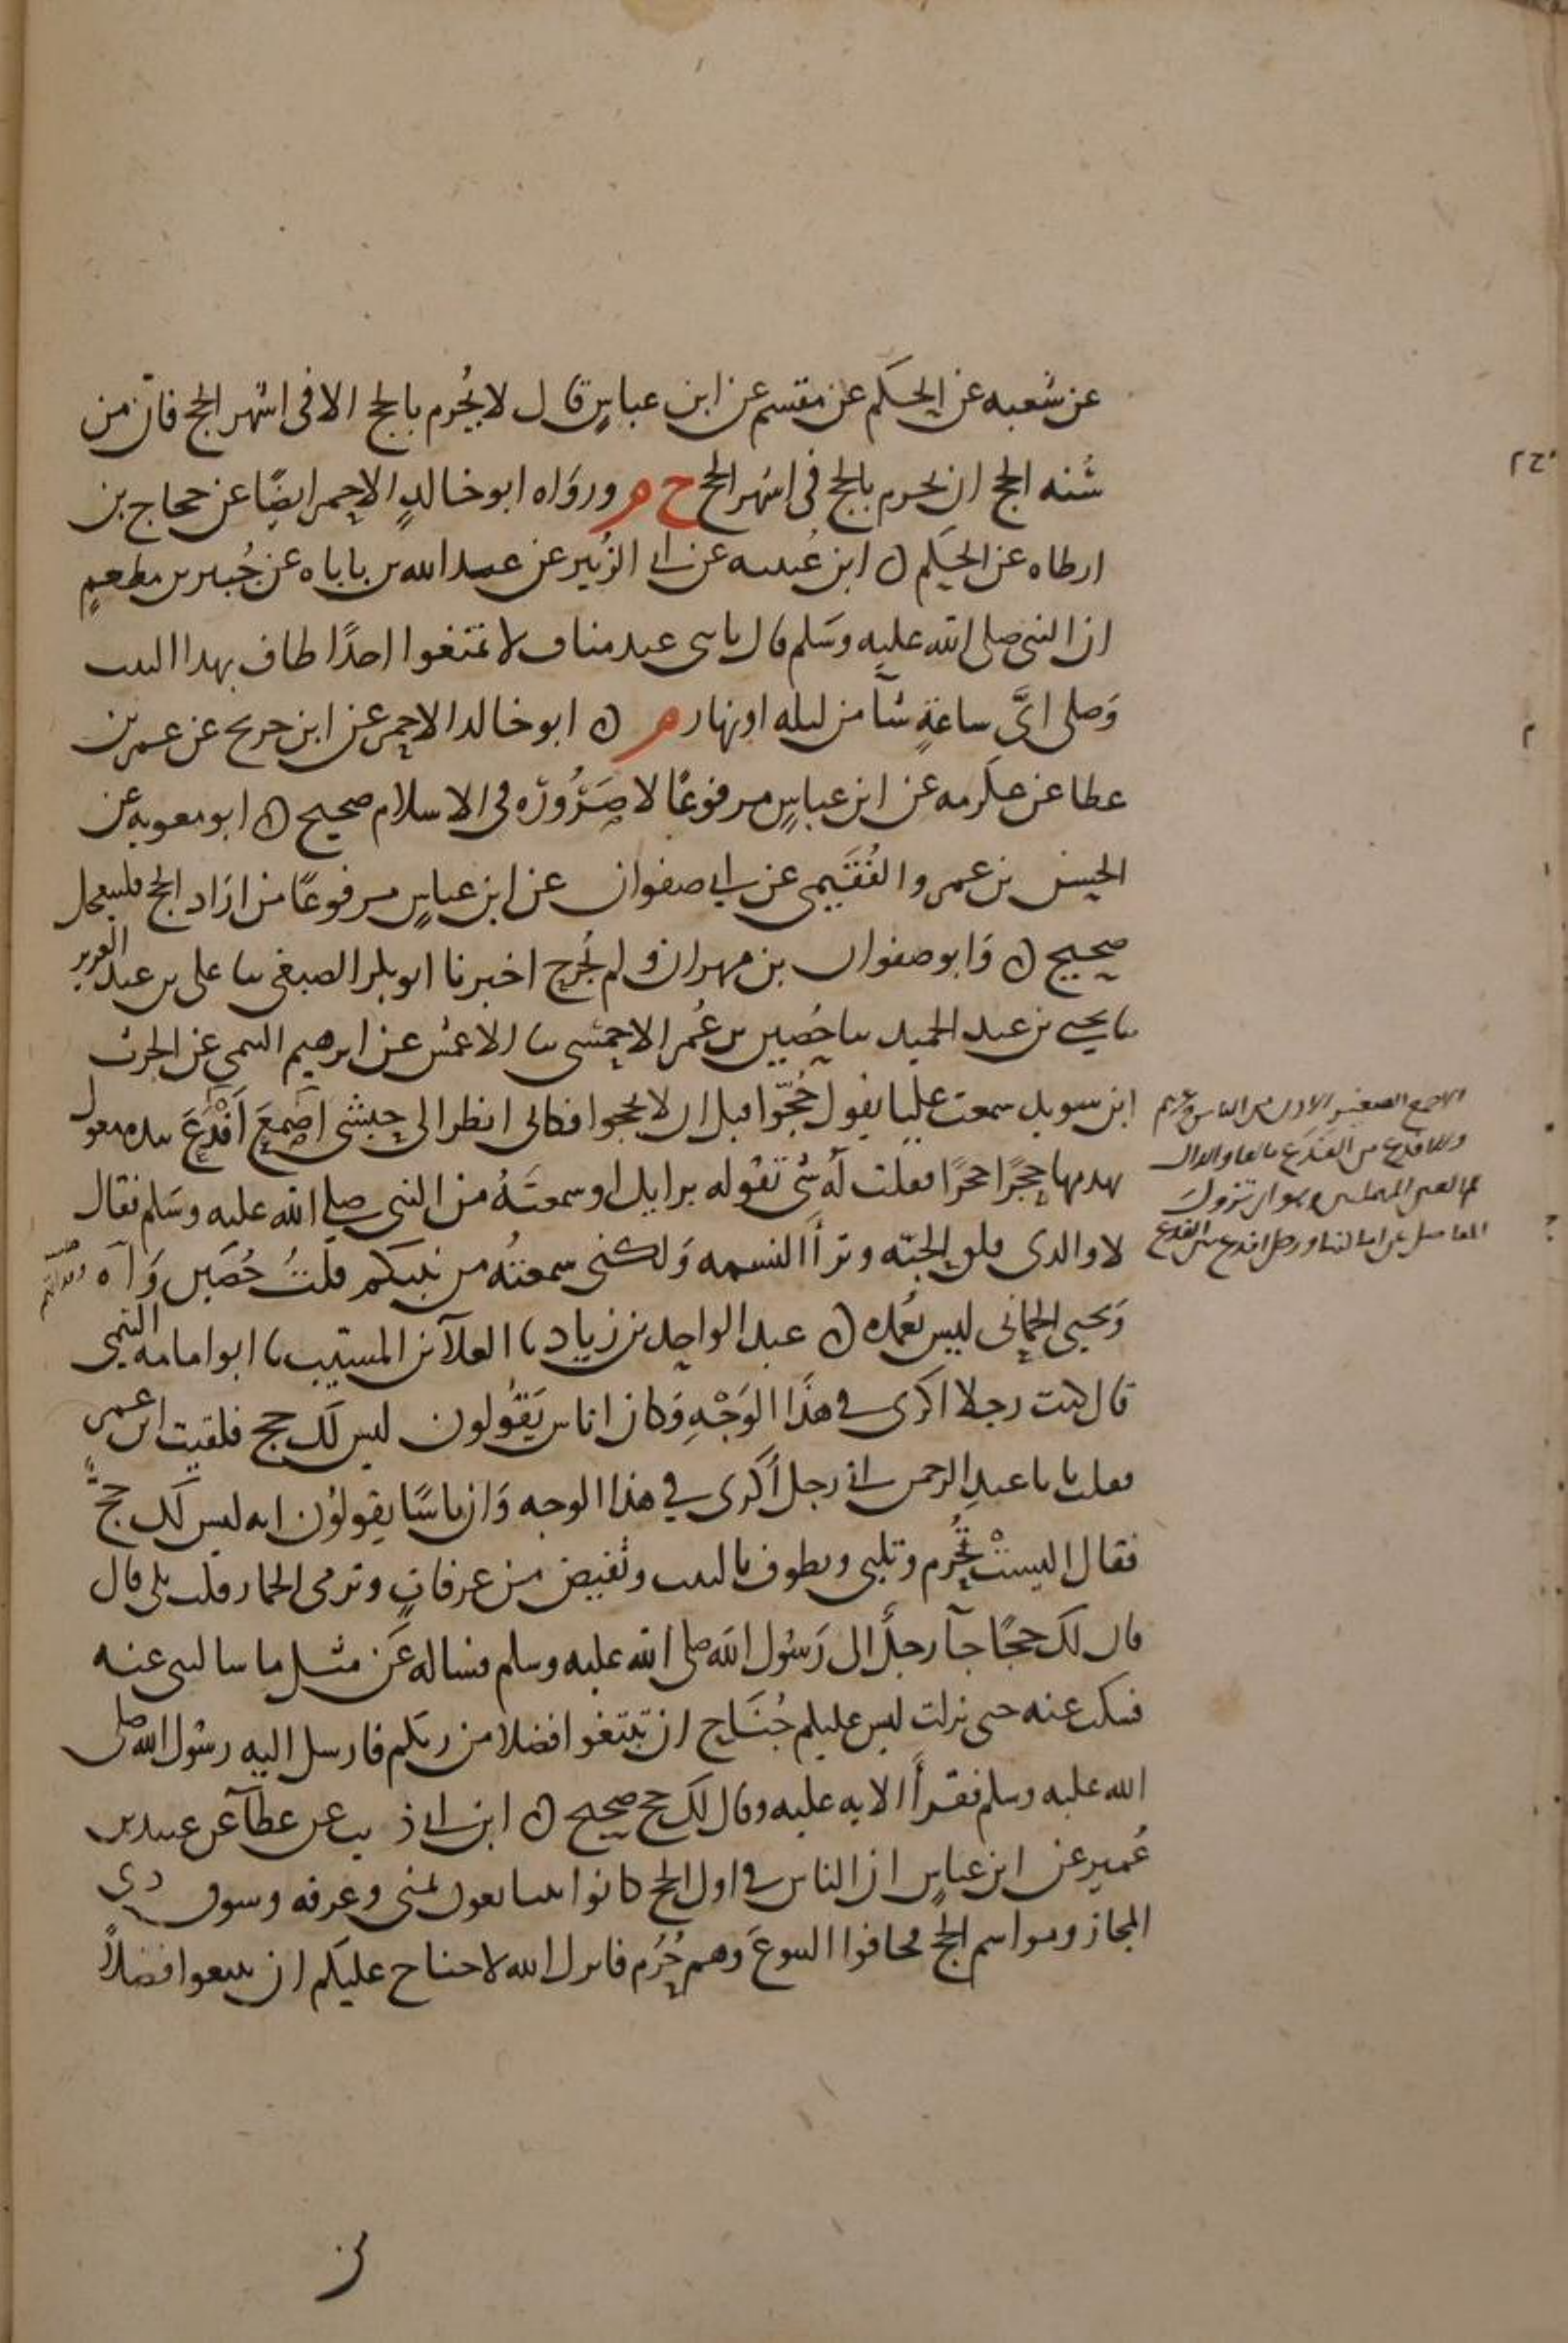 عن شعبه عن الحكم عن مقسم عن ابن عباس قال لا يحرم بالحج الا في اشهر الحج فان من
سُنه الحج ان يحرم بالحج في اشهر الحج خ م ورواه ابو خالد الاحمر ايضًا عن حجاج بن
ارطاه عن الحكم ن ابن عيينه عن ابي الزبير عن عبد الله بن باباه عن جُبير بن مطعمٍ
ان النبي صلى الله عليه وسلم قال يا بني عبد مناف لا تمنعوا احدًا طاف بهذا البيت
وَصلى ايَّ ساعةٍ شآ من ليله او نهار م ن ابو خالد الاحمر عن ابن جريج عن عمر بن
عطا عن عكرمه عن ابن عباسٍ مرفوعًا لا صَرُورَه في الاسلام صحيح ن ابو معويه عن
الحسن بن عمرو الفُقَيمي عن ابي صفوان عن ابن عباسٍ مرفوعًا من اراد الحج فليتعجل
صحيح ن وَابو صفوان بن مهران ولم يُجرح اخبرنا ابو بكر الصبغي ثنا علي بن عبد العزيز
ثنا يحيى بن عبد الحميد ثنا حُصين بن عُمر الاحمسي ثنا الاعمش عن ابرهيم التيمي عن الحرث
ابن سويد سمعت عليًا يقول حُجّوا قبل ان لا تحجوا فكاني انظر الى حبشي اصمعَ اَفْدَعَ بيده معول
يهدمها حجرًا حجرًا فقلت له شي تقوله برايك او سمعتَهُ من النبي صلى الله عليه وسلم فقال
لا والذي فلق الحبّه وبرأ النسمه وَلكني سمعتُه من نبيكم قلتُ حُصَين وَاه
وَيحيى الحماني ليس بعمده ن عبد الواحد بن زياد نا العلآ بن المسيب نا ابو امامه التيمي
قال كنت رجلا اكرى في هذَا الوَجْهِ وَكان اناس يَقُولون ليس لك حج فلقيت ابن عمر
فقلت يا با عبد الرحمن اني رجل اُكرى في هذا الوجه وَان ناسًا يقولُون انه ليس لك حجٌّ
فقال اليستْ تُحْرم وتلبي وتطوف بالبيت وتُفيض من عرفاتٍ وترمي الجمار قلت بلى قال
فان لك حجًا جآ رجلٌ الى رَسُول الله صلى الله عليه وسلم فساله عَن مثل ما سالتني عنه
فسكت عنه حتى نزلت ليس عليكم جُنَاح ان تبتغوا فضلا من ربكم فارسل اليه رسُول الله صلى
الله عليه وسلم فقرأ الايه عليه وقال لك حج صحيح ن ابن ابي ذيب عن عطآ عن عبيد بن
عُمير عن ابن عباسٍ ان الناس في اول الحج كانوا يتبايعون بمنى وعرفه وسوق ذي
المجاز ومواسم الحج فخافوا البيوعَ وَهم حُرُم فانزل الله لا جناح عليكم ان تبتغوا فضلاً
الاصمع الصغير الاذن من الناس وغيرهم
والافدع من الفَدَع بالفا والدال
ثم العين المهملتين وهو ان تزول
المفاصل عن اماكنها ورجل افدع بين الفدع